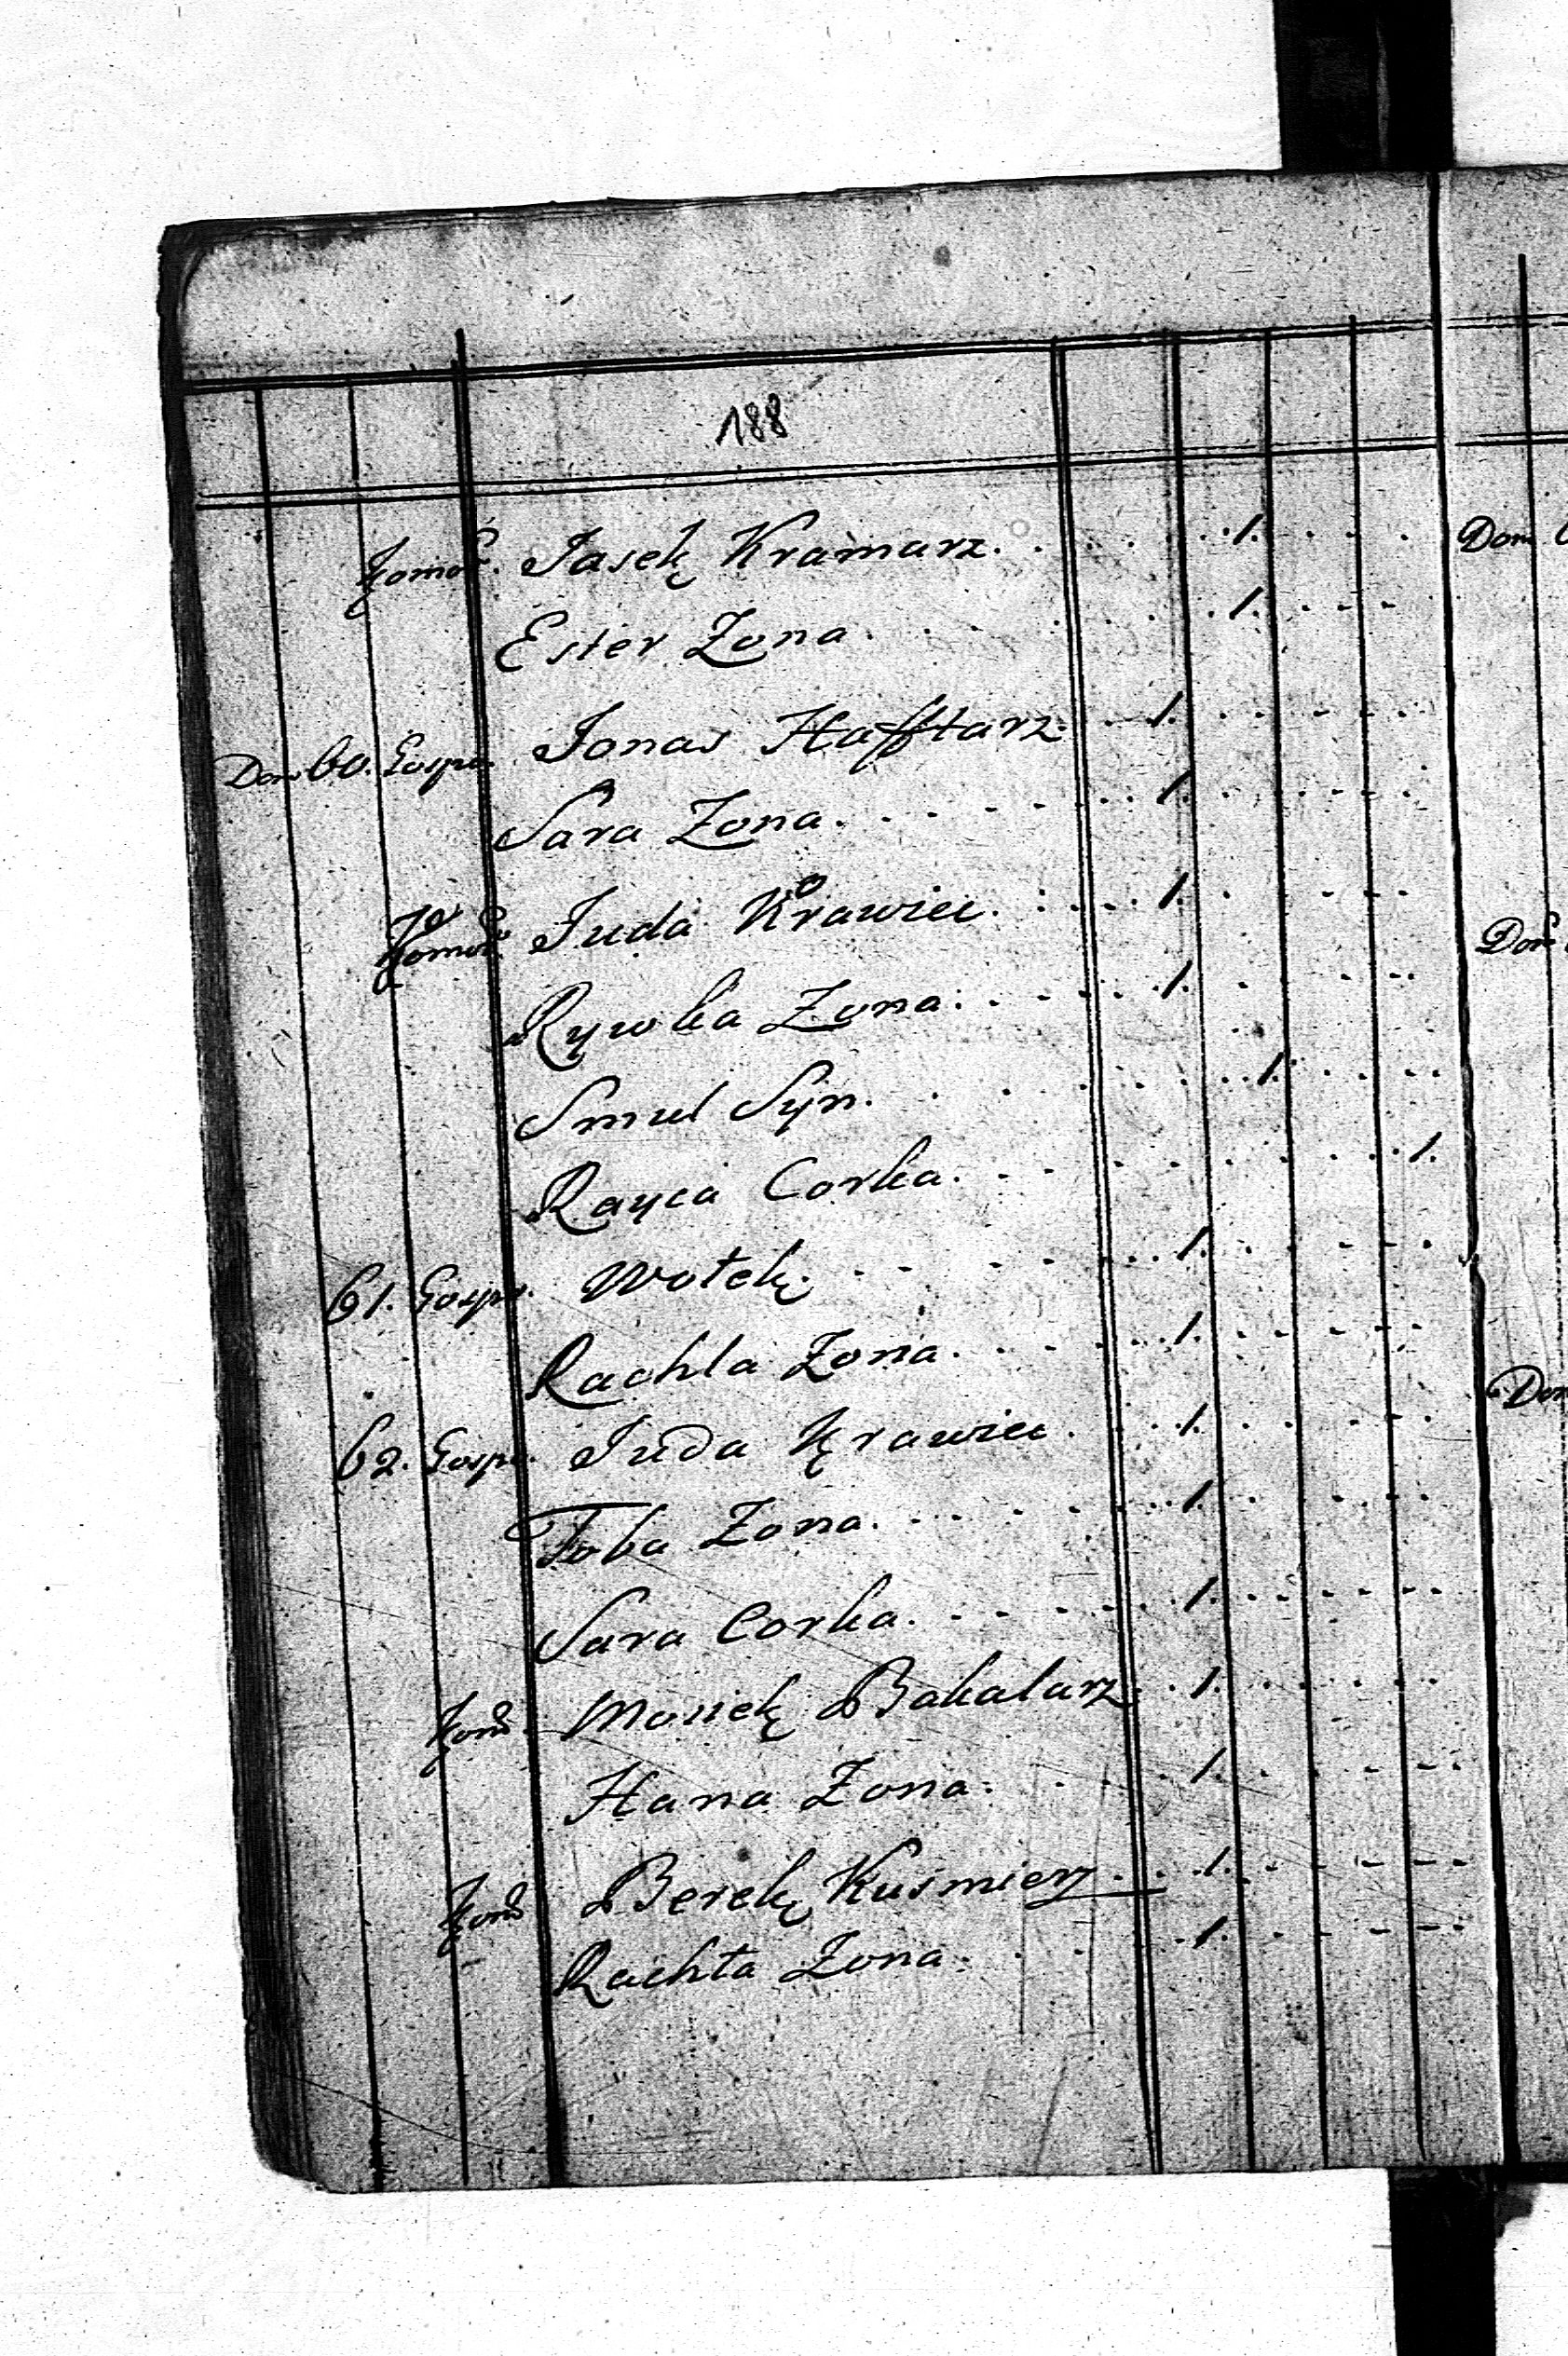 188
Komor. Jasek Kramarz. . . . . . . 1. . . . .
Ester Zona. . . . . . . 1. . . . .
Dom 60. Gospo. Jonas Hafftarz. . . 1. . . . . .
Sara Zona. . . . . . . 1. . . . . .
Komor. Juda Krawiec. . . . . 1. . . . .
Rywka Zona. . . . . . . 1. . . . .
Smul Syn. . . . . . . . 1. . . . .
Rayca Corka. . . . . . . . . . . 1.
61. Gospo. Wotek. . . . . . . 1. . . . . .
Rachla Zona. . . . . . . 1. . . . . .
62. Gospo. Juda Krawiec. . . . 1. . . . . .
Toba Zona. . . . . . . 1. . . . . .
Sara Corka. . . . . . . 1. . . . . .
Kom. Mosiek Bakalarz. . 1. . . . . .
Hana Zona. . . . . 1. . . . . .
Kom Berek Kusmierz. . . 1. . . . . .
Rachta Zona. . . . . 1. . . . . .
Dom
Dom
Dom